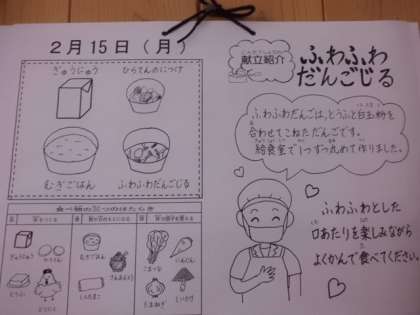 2月15日（月）
ぎゅうにゅう
ひらてんのにつけ
むぎごはん
ふわふわだんごじる
食べ物の三つのはたらき
ぎゅうにゅう
むぎごはん
こまつな
にんじん
とうふ
たまねぎ
しいたけ
献立紹介
ふわふわ
だんごじる
ふわふわだんごは、とうふと白玉粉を
合わせてこねただんごです。
給食室で1つずつ丸めて作りました。
ふわふわとした
口あたりを楽しみながら
よくかんで食べてください。